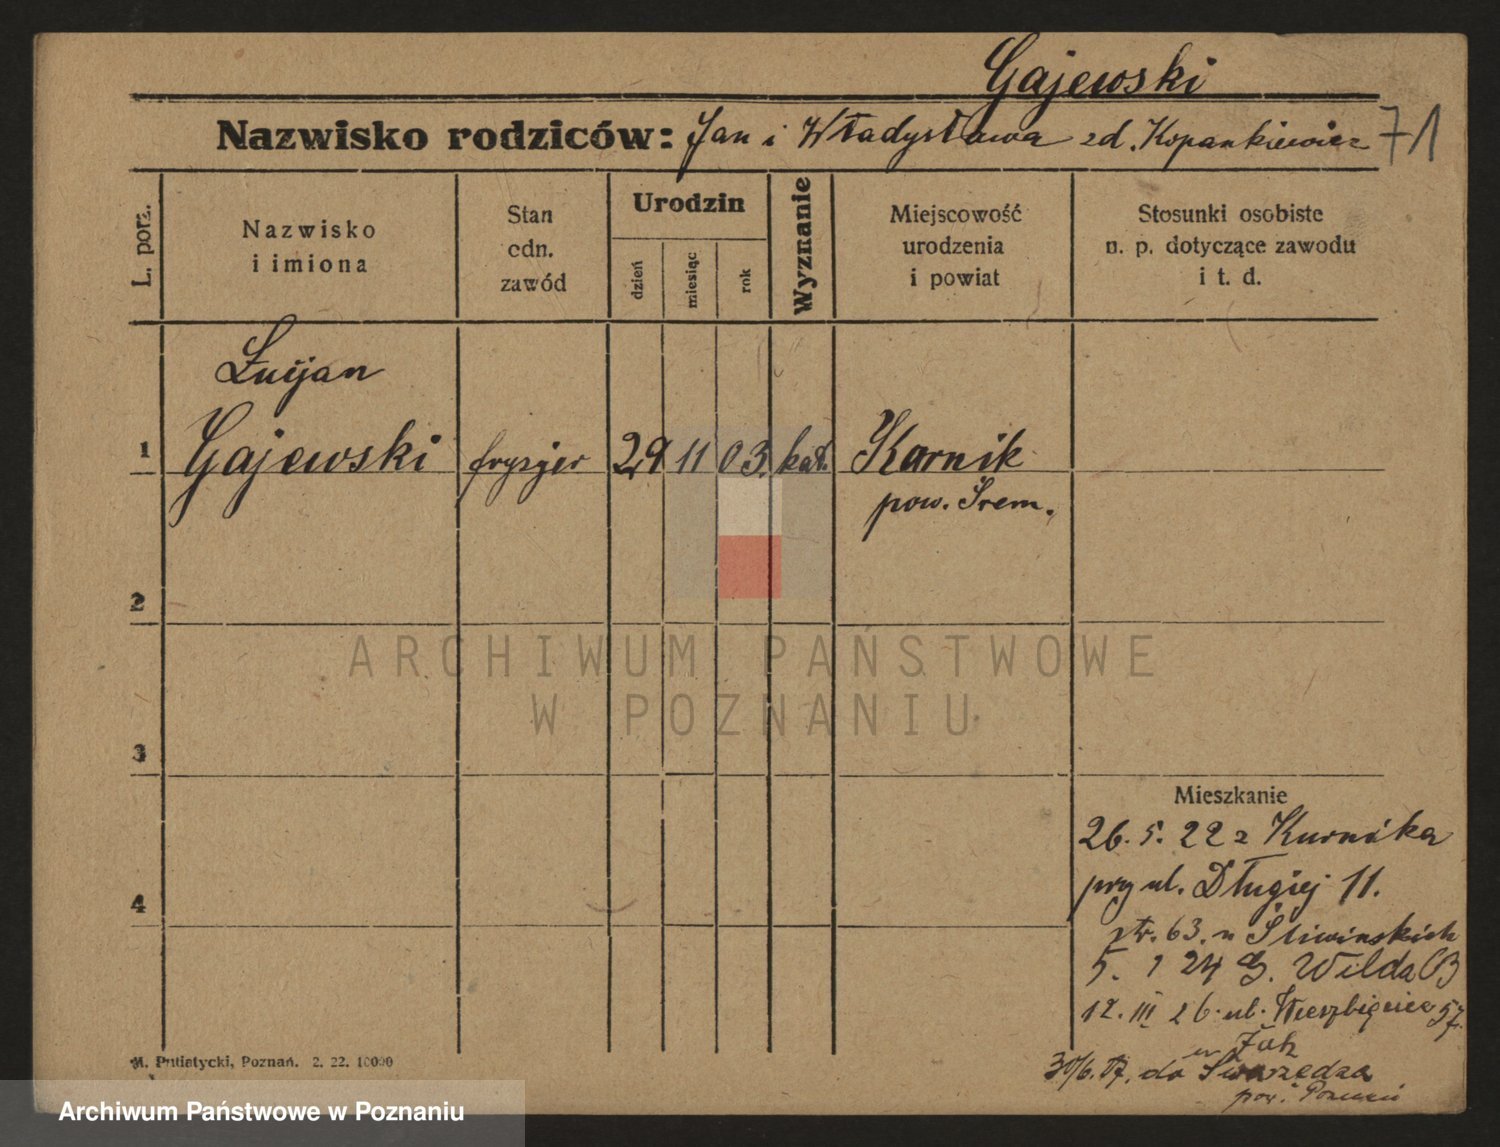 Gajewski
Nazwisko rodziców: Jan i Władysława zd. Kopankiewicz 71
L. porz.
Nazwisko
i imiona
Stan
cdn.
zawód
Urodzin
dzień
miesiąc
rok
Wyznanie
Miejscowość
urodzenia
i powiat
Stosunki osobiste
n. p. dotyczące zawodu
i t. d.
Lucjan
1 Gajewski fryzjer 29 11 03. kat. Kornik
pow. Śrem.
2
3
4
Mieszkanie
26. 5. 22 z Kurnika
przy ul. Długiej 11.
str. 63. u Śliwińskich
5. 1 24 G. Wilda
12. III 26. ul. Wierzbięcice 57.
u Żak
do Swarzędza
pow. Poznań
M. Putiatycki, Poznań. 2. 22. 10000
ARCHIWUM PAŃSTWOWE
W POZNANIU
Archiwum Państwowe w Poznaniu